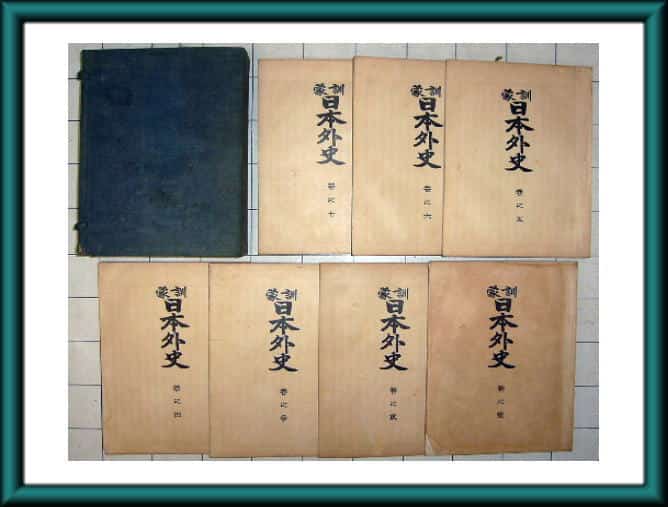 訓蒙
日本外史
卷之五
訓蒙
日本外史
卷之六
訓蒙
日本外史
卷之七
訓蒙
日本外史
卷之壹
訓蒙
日本外史
卷之貳
訓蒙
日本外史
卷之參
訓蒙
日本外史
卷之四